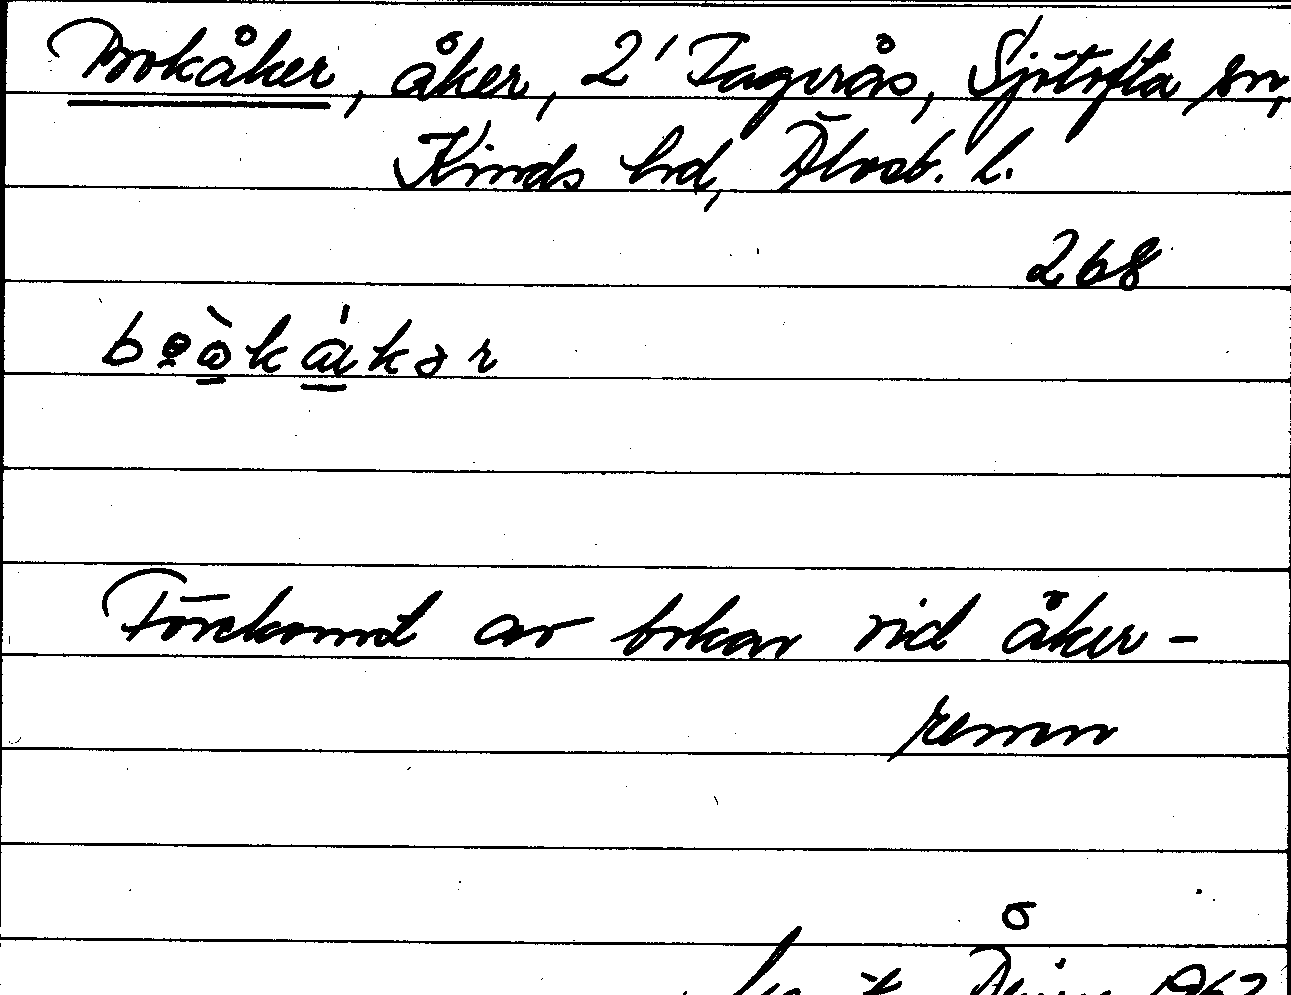 Bokåker, åker, 2' Tagerås, Sjötofta sn,
Kinds hd, Älvsb. l.
268
Förekomst av bokar vid åker-
renen